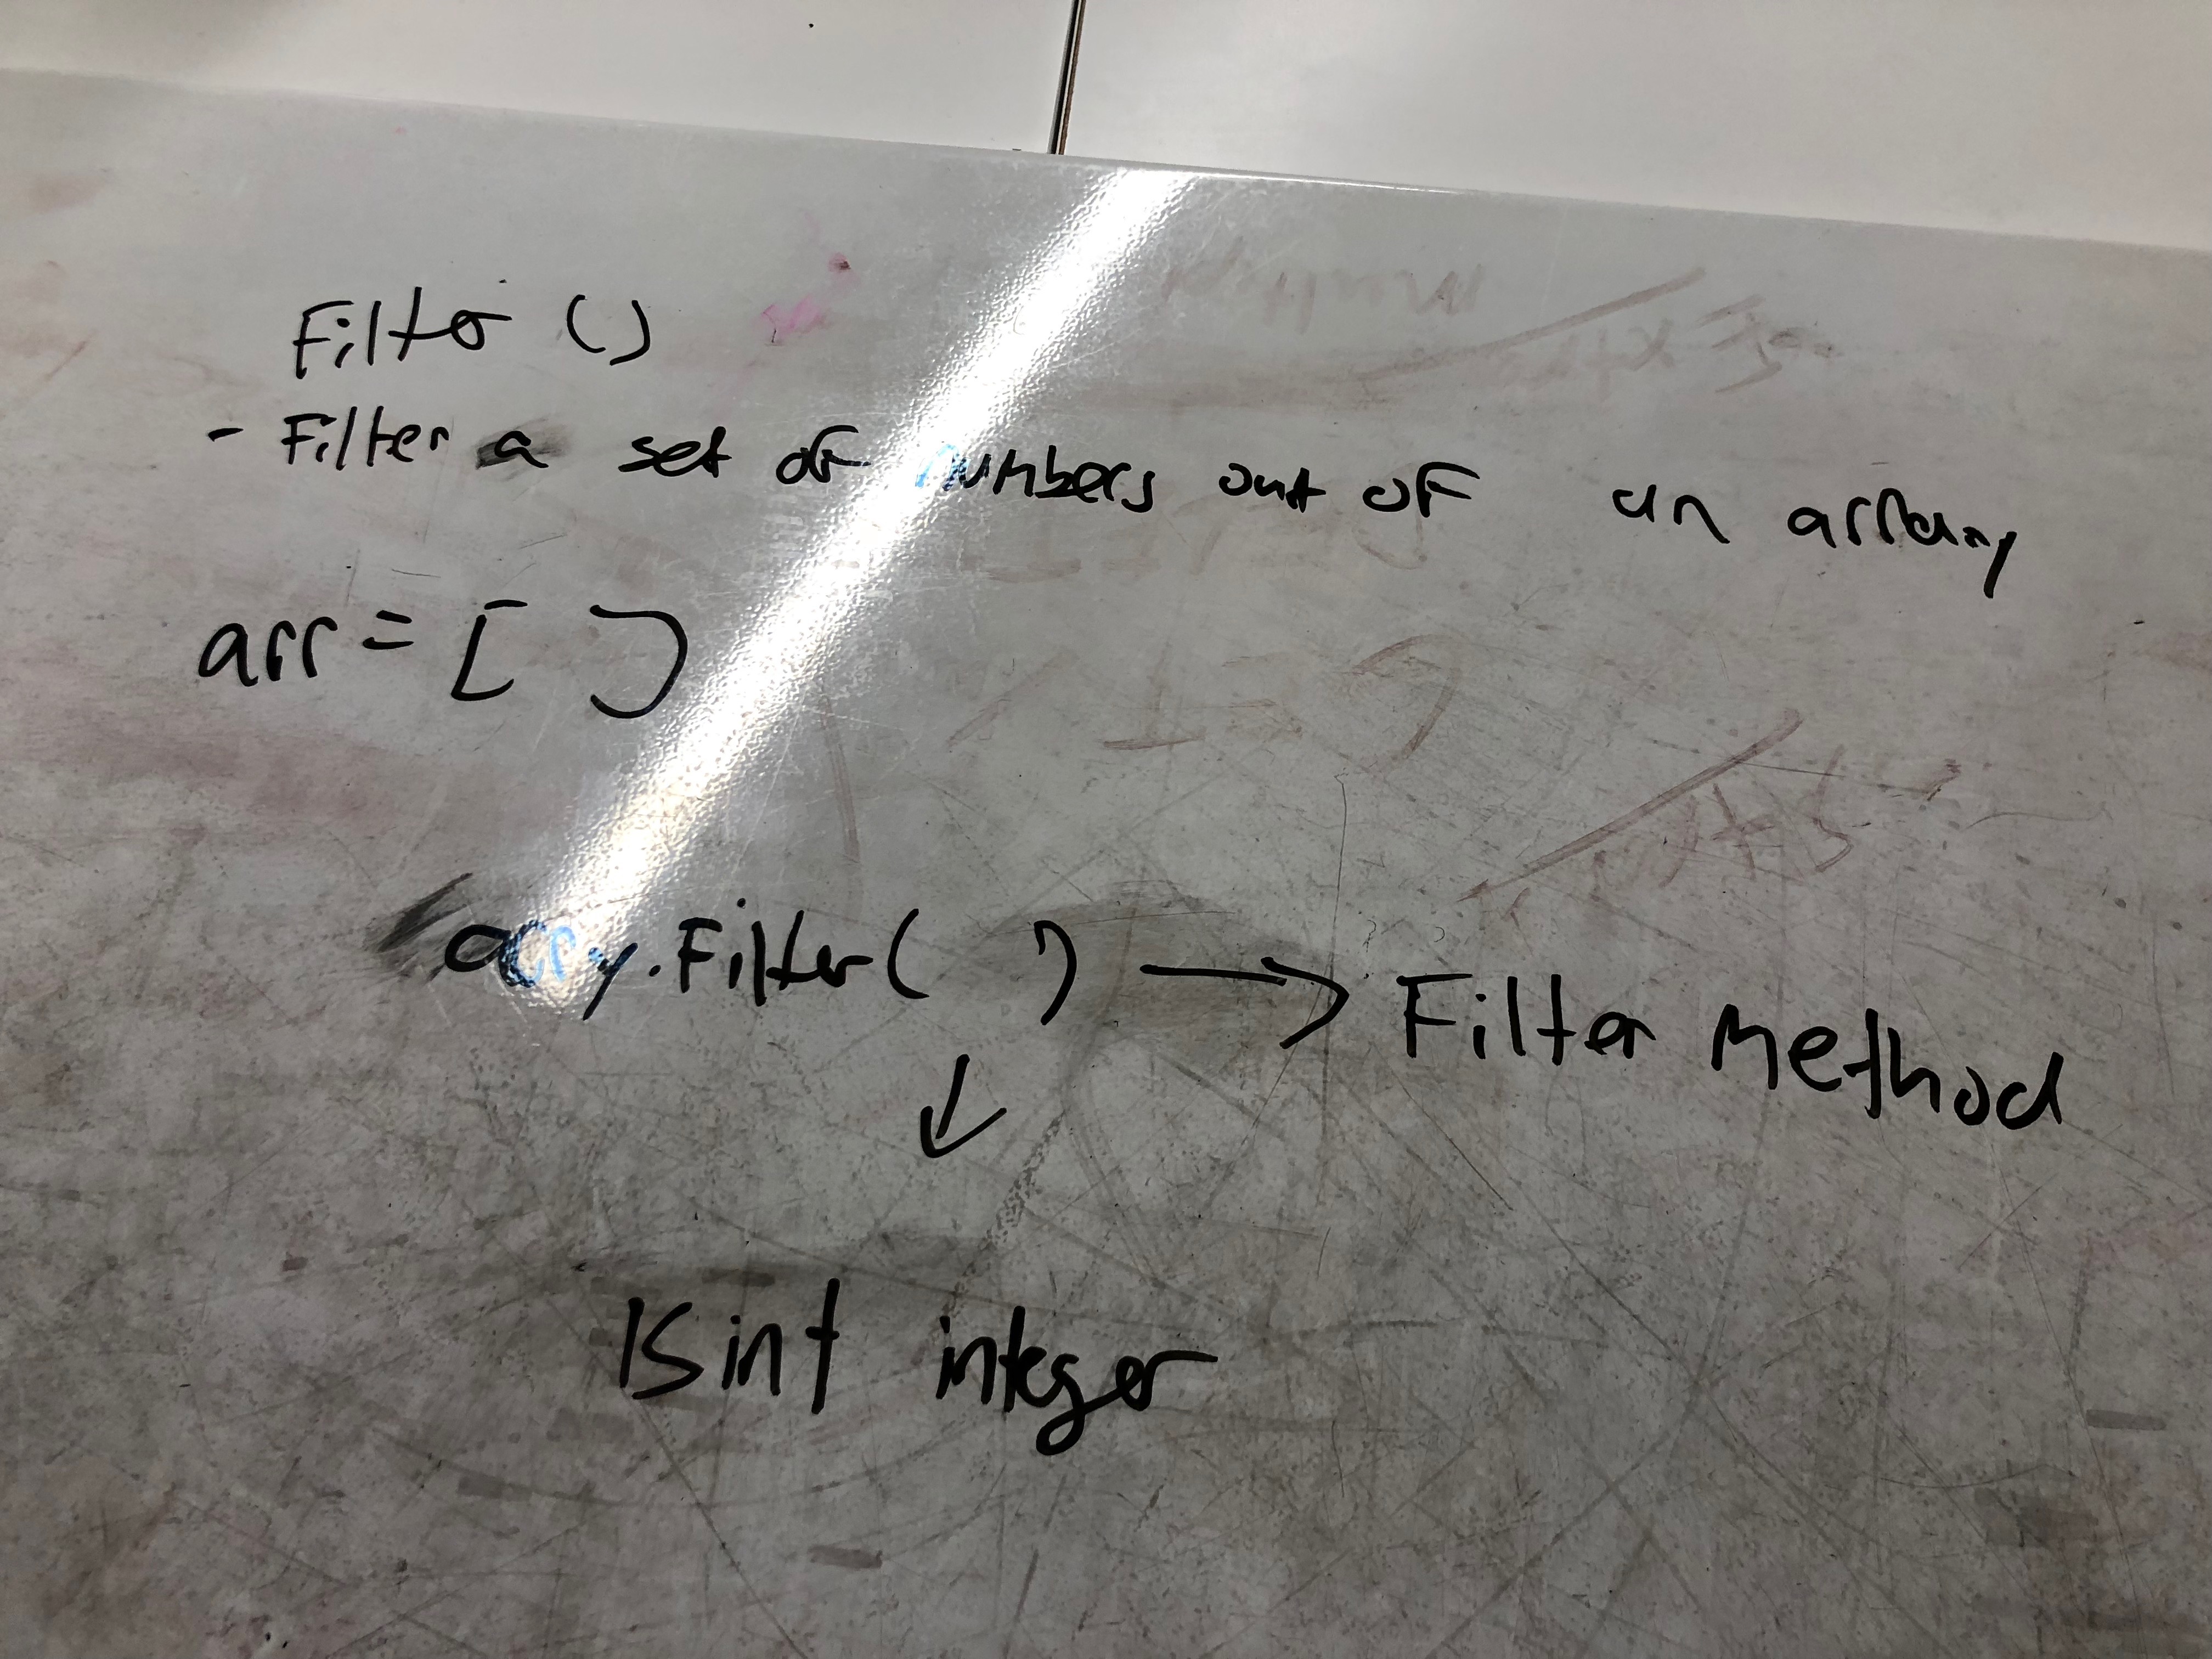 Filter ()
- Filter a set of numbers out of an array
arr = [ ]
arry.Filter( ) → Filter Method
↓
isint integer